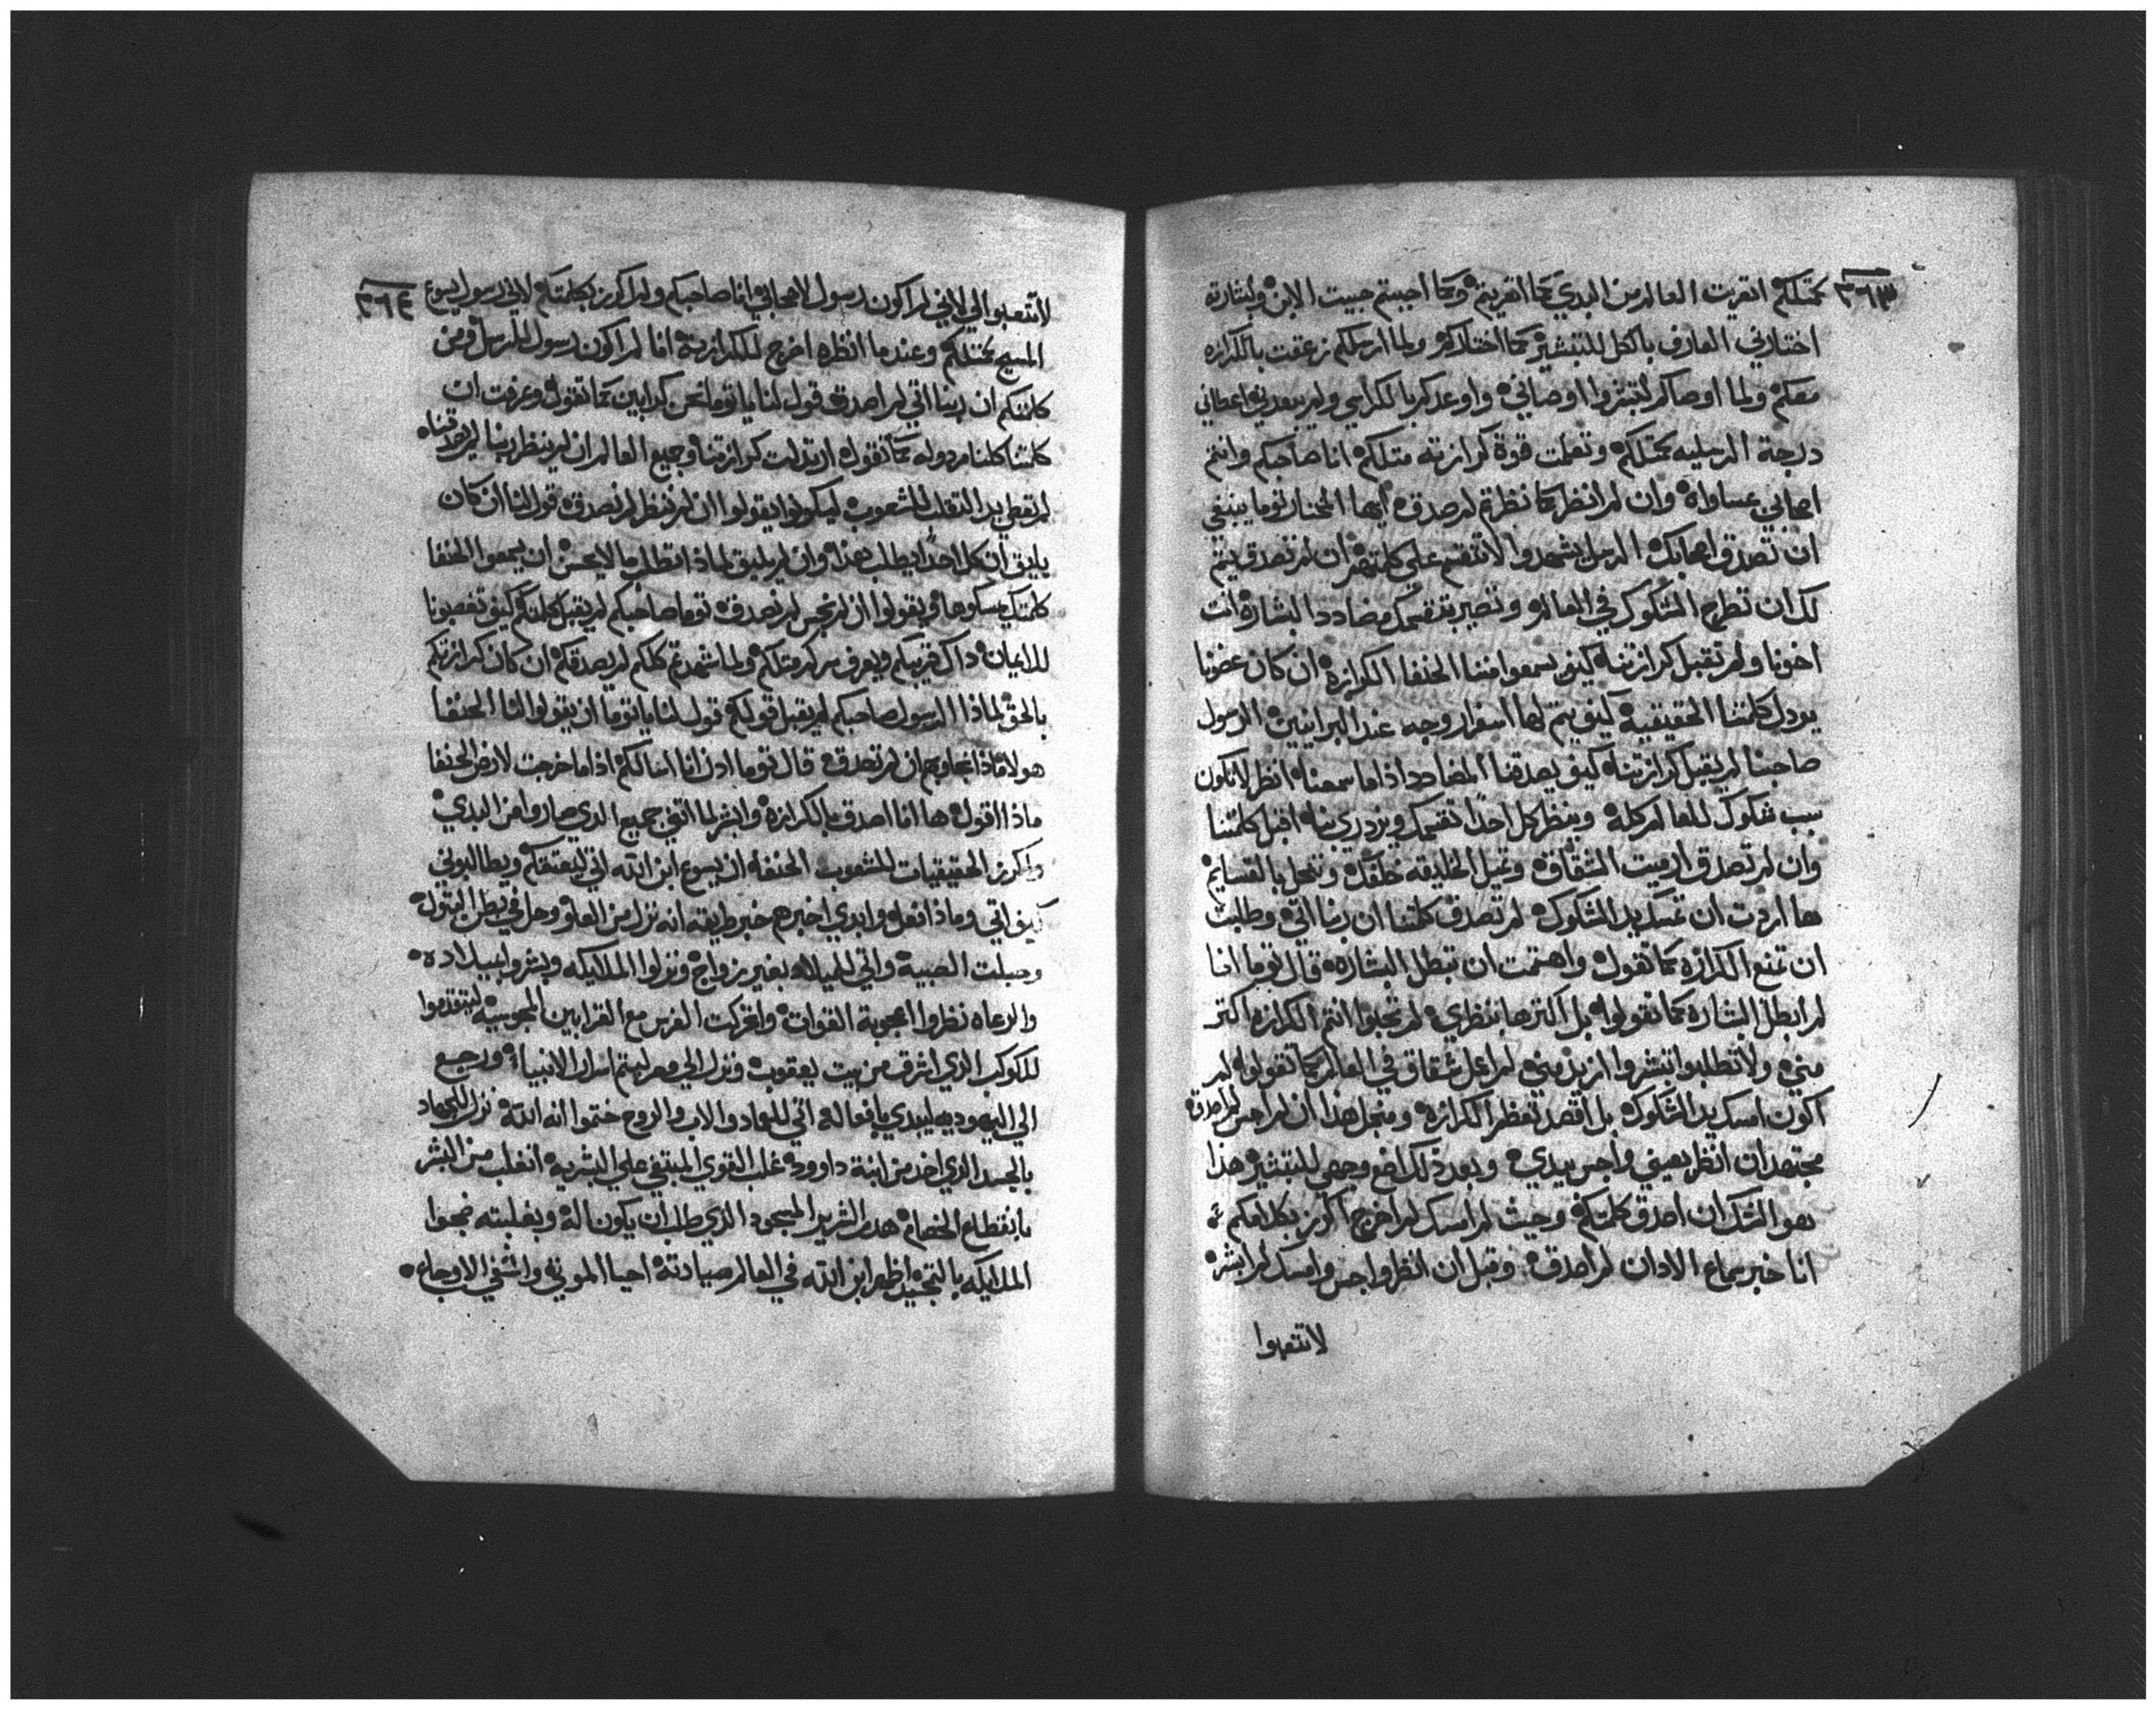 ٣٦٣
كمتلكم انفرزت العالم من البدي كما انفرزتم وكما اجبتم جبيت الابن ولبشارته
اختارني العارف بالكل للتبشير كما اختاركم ولما ارسلكم زعقت بالكرازه
معكم ولما اوصاكم لتبشروا اوصاني واوعدكم بالكراسي ولم يبعدني اعطاني
درجة الرسليه كمتلكم وتعلمت قوة كرازته متلكم انا صاحبكم وانتم
اصحابي بمساواه وان لم انظر كما نظرتم لم صدق ايها المختار توما ينبغي
ان تصدق اصحابك الرسل يشهدوا لا تنقسم علي كلمتهم ان لم تصدق يتم
لك ان تطرح الشكوك في العالم وتصير بتقسمك مضادد البشاره انت
اخونا ولم تقبل كرازتنا كيف يسمعوا مننا الحنفا الكرازه ان كان عضونا
يردل كلمتنا الحقيقيه كيف يتم لها اسفرار وجه عند البرانيين الرسول
صاحبنا لم يقبل كرازتنا كيف يصدقنا المضادد اذا ما سمعنا انظر لا تكون
سبب شكوك للعالم كله وينظر كل احدا تقسمك ويزدري بنا اقبل كلمتنا
وان لم تصدق ارميت الشقاق وتميل الخليقه خلفك وتنحل بالقسايم
ها اردت ان تمسك بيد الشكوك لم تصدق كلمتنا ان ربنا اتي وطلبت
ان تمنع الكرازه كما تقول واهتمت ان تبطل البشاره قال توما انا
لم ابطل البشاره كما تقولوا بل اكترها بنظري لم تحبوا انتم الكرازه اكتر
مني ولا تطلبوا تبشروا ازيد مني لم اعمل شقاق في العالم كما تقولوا لم
اكون امسك يد الشكوك بل اقصد تعظم الكرازه ومتجل هذا ان لم اجس لم اصدق
مجتهد ان انظر بعيني واجس بيدي وبعد ذلك اضع وجهي للتبشير هذا
هو الشك ان اصدق كلمتكم وحيث لم امسك لم اخرج اكرز بكلامكم
انا خبر سماع الادان لم اصدق وقبل ان انظر واجس وامسك لم ابشر
لا تتعبوا
٣٦٤
لا تتعبوا الي لاني لم اكون رسول لاصحابي انا صاحبكم ولم اكرز بكلمتكم لاني رسول يسوع
المسيح كمتلكم وعندما انظره اخرج للكرازه انا لم اكون رسول للرسل ومن
كلمتكم ان ربنا اتي لم اصدق قول لنا يا توما نحن كدابين كما تقول وعرفت ان
كلمتنا كلنا مردوله كما تقول اردلت كرازتنا وجميع العالم ان لم ينظر ربنا لم يصدقنا
لم تعطي يد التقلب للشعوب ليكونوا يقولوا ان لم ننظر لم نصدق قول لنا ان كان
يليق ان كل احدا يطلب هذا وان لم يليق لماذا تطلب ما لا يحسن ان يسمعوا الحنفا
كلمتك يمسكوها ويقولوا ان لم نجس لم نصدق توما صاحبكم لم يقبل كلمتكم كيف تغصبونا
للايمان داك قريبكم ويعرف سركم متلكم ولما شهدتم كلكم لم يصدقكم ان كان كرازتكم
بالحق لماذا الرسول صاحبكم لم يقبل قولكم قول لنا يا توما ان يقولوا لنا الحنفا
هولا ماذا نجاوبهم ان لم تصدق قال توما ادن انا اسالكم اذا ما خرجت لارض الحنفا
ماذا اقول ها انا اصدق بالكرازه وابشر لما اتفق جميع الدي صاروا من البدي
واكرز الحقيقيات للشعوب الحنفا ان يسوع ابن الله اتي ليعتقكم ويطالبوني
كيف اتي وماذا افعل وابدي اخبرهم خبر طريقته انه نزل من العلو وحل في بطن البتول
وحبلت الصبية واتي للميلاد بغير زواج ونزلوا الملايكه وبشروا بميلاده
والرعاه نظروا اعجوبة القوات واتحركت الفرس مع القرابين المجوسيه ليتقدموا
للكوكب الدي اشرق من بيت يعقوب ونزل الي مصر ليتم اسرار الانبياء ورجع
الي اليهوديه ليبدي بافعاله اتي للعماد والاب والروح ختموا انه الله نزل للجهاد
بالجسد الدي اخد من ابنة داوود غلب القوي المبتغي علي البشريه انغلب من البشر
بانقطاع الخصام هدم الشرير المسجود الدي طلب ان يكون اله وبغلبته ضجوا
الملايكه بالتمجيد اظهر ابن الله في العالم صيادته احيا الموتي واشفي الاوجاع